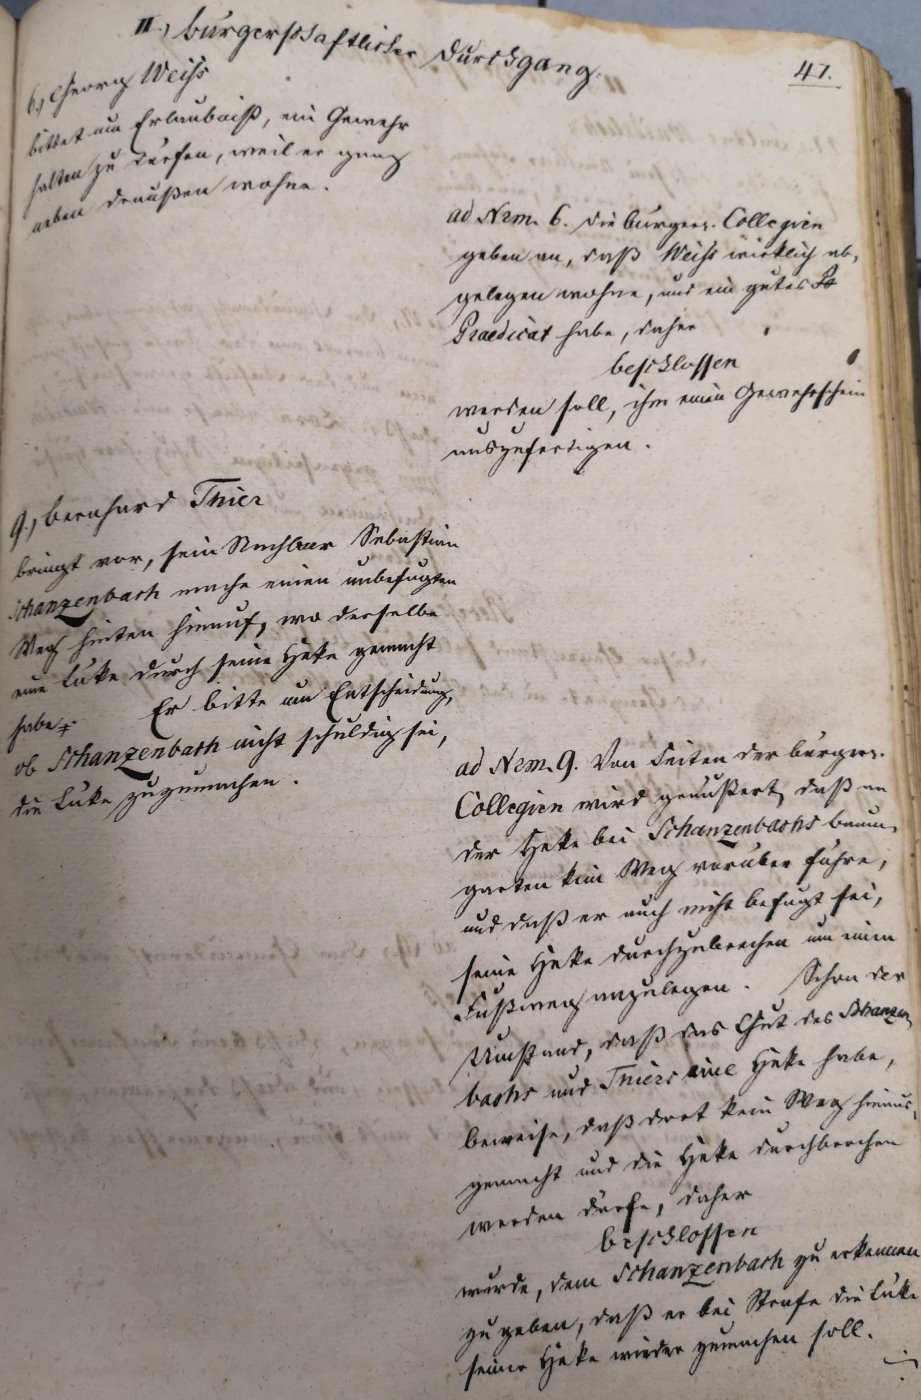 II., bürgerschaftlicher Durchgang.
47.
6., Georg Weihs
bittet um Erlaubniß, ein Gewehr
halten zu dürfen, weil er ganz
oben draußen wohne.
ad Nrm. 6. Die bürgerl. Collegien
geben an, daß Weihs wirklich ab-
gelegen wohne, und ein gutes
Praedicat habe, daher
beschlossen
werden soll, ihm einen Gewehrschein
auszufertigen.
9., Bernhard Thier
bringt vor, sein Nachbar Sebastian
Schanzenbach mache einen unbefugten
Weg hinten hinauf, wo derselbe
eine Luke durch seine Heke gemacht
habe. Er bitte um Entscheidung,
ob Schanzenbach nicht schuldig sei,
die Luke zuzumachen.
ad Nrm. 9. Von Seiten der bürgerl.
Collegien wird geäußert, daß an
der Heke bei Schanzenbachs Baum-
garten kein Weg vorüber führe,
und daß er auch nicht befugt sei,
seine Heke durchzubrechen um einen
Fußweg anzulegen. Schon der
Umstand, daß das Gut des Schanzen-
bachs und Thiers eine Heke habe,
beweise, daß dort kein Weg hinaus-
gemacht und die Heke durchbrochen
werden dürfe, daher
beschlossen
wurde, dem Schanzenbach zu erkennen
zu geben, daß er bei Strafe die Luke
seiner Heke wieder zumachen soll.